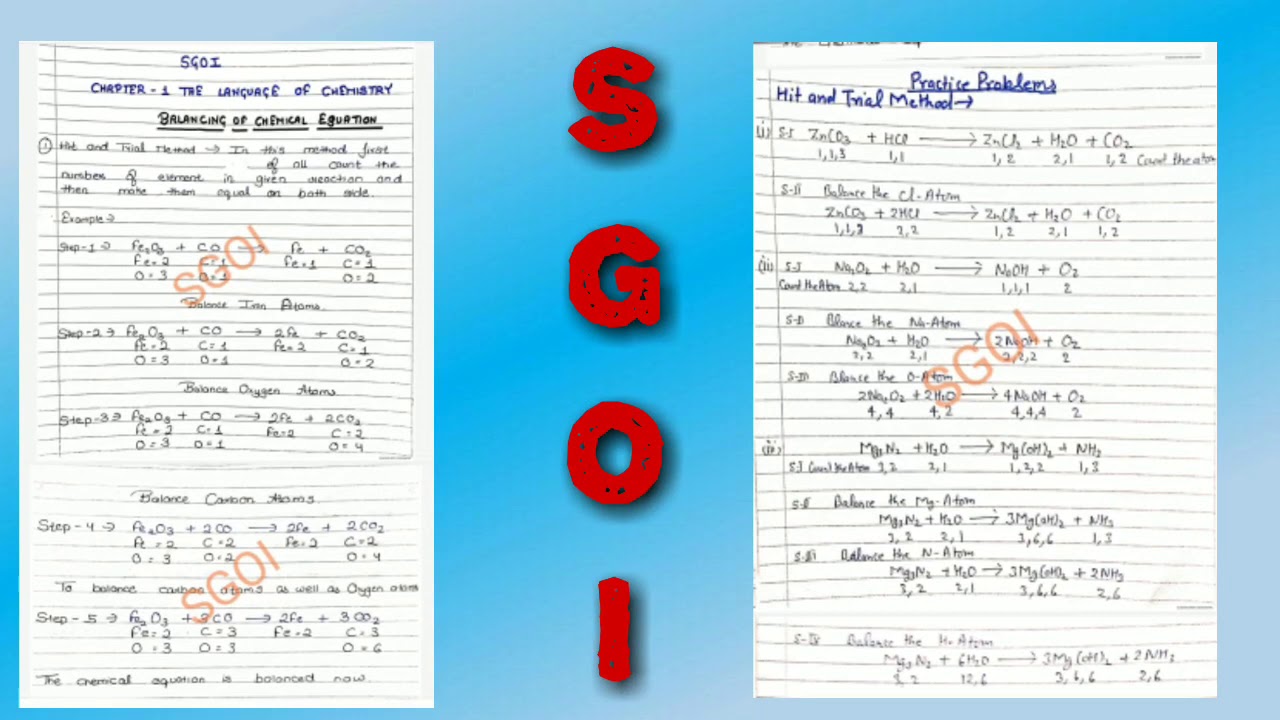 SGOI
CHAPTER - 1 THE LANGUAGE OF CHEMISTRY
BALANCING OF CHEMICAL EQUATION
① Hit and Trial Method → In this method first
of all count the
numbers of element in given reaction and
then make them equal on both side.
Example →
Step-1 → Fe₂O₃ + CO → Fe + CO₂
Fe=2 C=1 Fe=1 C=1
O=3 O=1 O=2
Balance Iron Atoms.
Step-2 → Fe₂O₃ + CO → 2Fe + CO₂
Fe=2 C=1 Fe=2 C=1
O=3 O=1 O=2
Balance Oxygen Atoms.
Step-3 → Fe₂O₃ + CO → 2Fe + 2CO₂
Fe=2 C=1 Fe=2 C=2
O=3 O=1 O=4
Balance Carbon Atoms.
Step-4 → Fe₂O₃ + 2CO → 2Fe + 2CO₂
Fe=2 C=2 Fe=2 C=2
O=3 O=2 O=4
To balance carbon atoms as well as Oxygen atoms
Step-5 → Fe₂O₃ + 3CO → 2Fe + 3CO₂
Fe=2 C=3 Fe=2 C=3
O=3 O=3 O=6
The chemical equation is balanced now.
SGOI
SGOI
S
G
O
I
Practice Problems
Hit and Trial Method →
(i) S-I ZnCO₃ + HCl → ZnCl₂ + H₂O + CO₂
1,1,3 1,1 1,2 2,1 1,2 Count the atom
S-II Balance the Cl-Atom
ZnCO₃ + 2HCl → ZnCl₂ + H₂O + CO₂
1,1,3 2,2 1,2 2,1 1,2
(ii) S-I Na₂O₂ + H₂O → NaOH + O₂
Count the Atom 2,2 2,1 1,1,1 2
S-II Blance the Na-Atom
Na₂O₂ + H₂O → 2NaOH + O₂
2,2 2,1 2,2,2 2
S-III Blance the O-Atom
2Na₂O₂ + 2H₂O → 4NaOH + O₂
4,4 4,2 4,4,4 2
Mg₃N₂ + H₂O → Mg(OH)₂ + NH₃
S-I Count the Atom 3,2 2,1 1,2,2 1,3
S-II Balance the Mg-Atom
Mg₃N₂ + H₂O → 3Mg(OH)₂ + NH₃
3,2 2,1 3,6,6 1,3
S-III Balance the N-Atom
Mg₃N₂ + H₂O → 3Mg(OH)₂ + 2NH₃
3,2 2,1 3,6,6 2,6
S-IV Balance the H-Atom
Mg₃N₂ + 6H₂O → 3Mg(OH)₂ + 2NH₃
3,2 12,6 3,6,6 2,6
SGOI